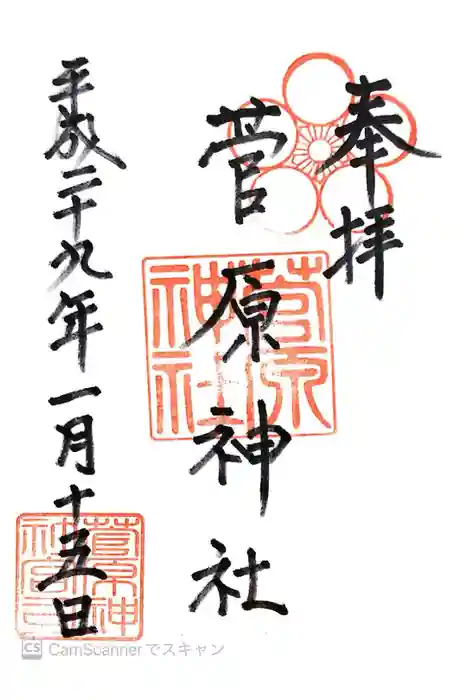 奉拝
菅原神社
平成二十九年一月十五日
菅原神社
CS CamScannerでスキャン